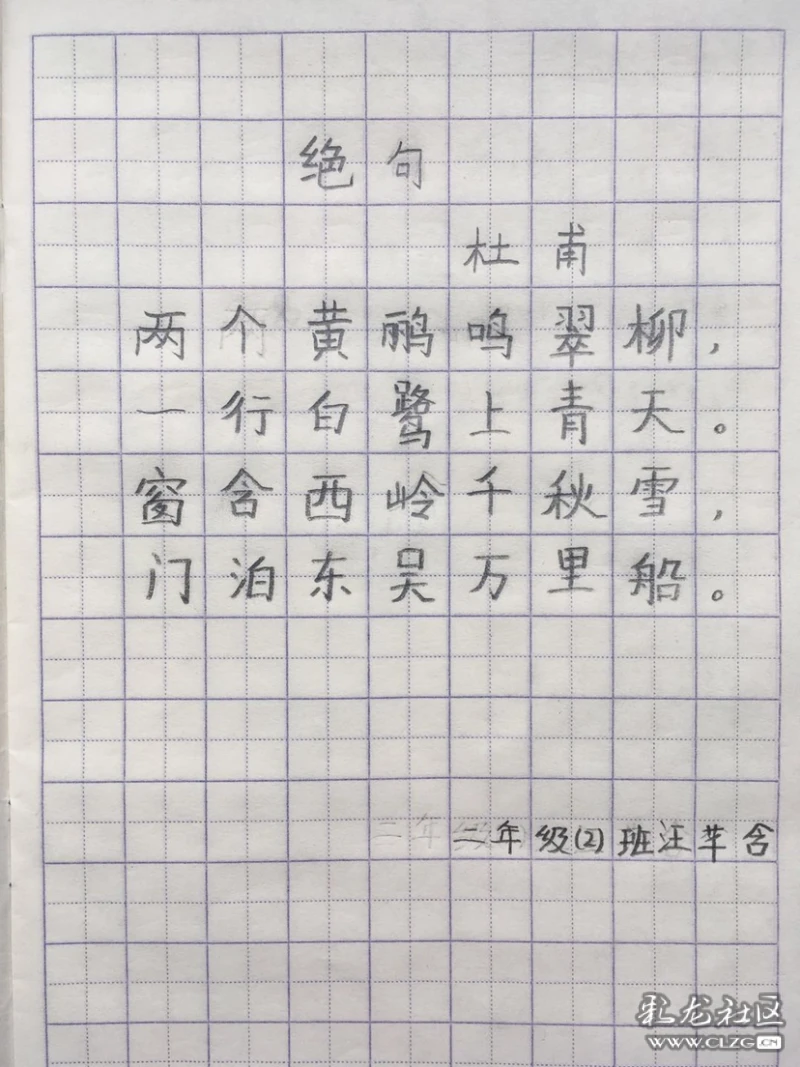 绝句
杜甫
两个黄鹂鸣翠柳,
一行白鹭上青天。
窗含西岭千秋雪,
门泊东吴万里船。
二年级(2)班汪芈含
乳龙社区
WWW.CLZG.CN